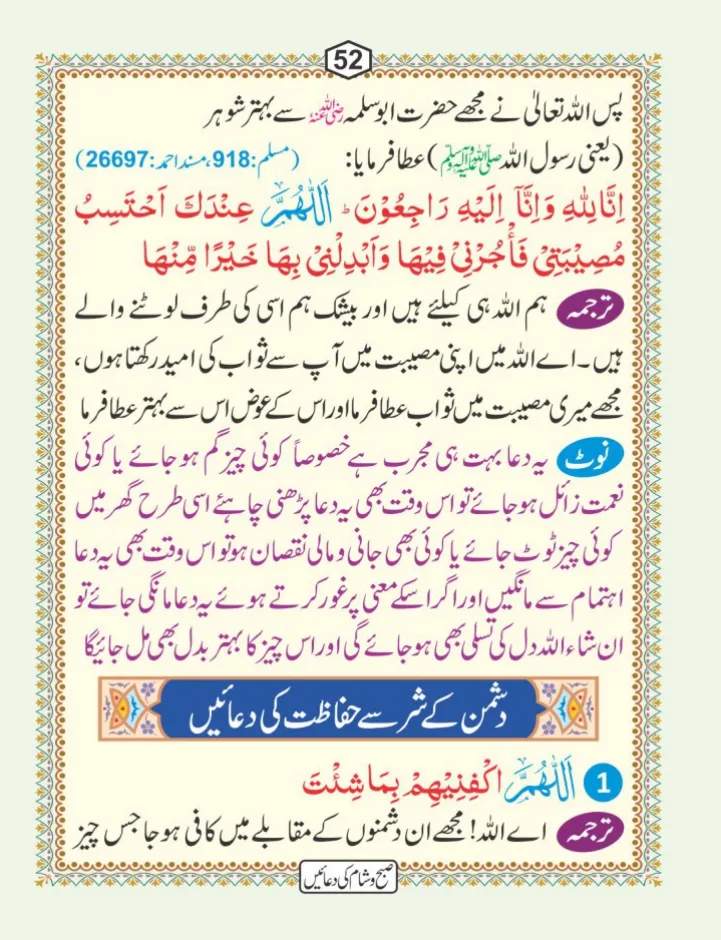 52
پس اللہ تعالیٰ نے مجھے حضرت ابوسلمہ رضی اللہ عنہ سے بہتر شوہر
(یعنی رسول اللہ صلی اللہ علیہ وآلہ وسلم) عطا فرمایا: (مسلم:918، مسند احمد:26697)
اِنَّالِلّٰهِ وَاِنَّاۤ اِلَيْهِ رَاجِعُوْنَ ؕ اَللّٰهُمَّ عِنْدَكَ اَحْتَسِبُ
مُصِيْبَتِيْ فَأْجُرْنِيْ فِيْهَا وَاَبْدِلْنِيْ بِهَا خَيْرًا مِّنْهَا
ترجمہ ہم اللہ ہی کیلئے ہیں اور بیشک ہم اسی کی طرف لوٹنے والے
ہیں۔ اے اللہ میں اپنی مصیبت میں آپ سے ثواب کی امید رکھتا ہوں،
مجھے میری مصیبت میں ثواب عطا فرما اور اس کے عوض اس سے بہتر عطا فرما
نوٹ یہ دعا بہت ہی مجرب ہے خصوصاً کوئی چیز گم ہو جائے یا کوئی
نعمت زائل ہو جائے تو اس وقت بھی یہ دعا پڑھنی چاہئے اسی طرح گھر میں
کوئی چیز ٹوٹ جائے یا کوئی بھی جانی و مالی نقصان ہو تو اس وقت بھی یہ دعا
اہتمام سے مانگیں اور اگر اسکے معنی پر غور کرتے ہوئے یہ دعا مانگی جائے تو
ان شاء اللہ دل کی تسلی بھی ہو جائے گی اور اس چیز کا بہتر بدل بھی مل جائیگا
دشمن کے شر سے حفاظت کی دعائیں
1 اَللّٰهُمَّ اكْفِنِيْهِمْ بِمَا شِئْتَ
ترجمہ اے اللہ! مجھے ان دشمنوں کے مقابلے میں کافی ہو جا جس چیز
صبح و شام کی دعائیں